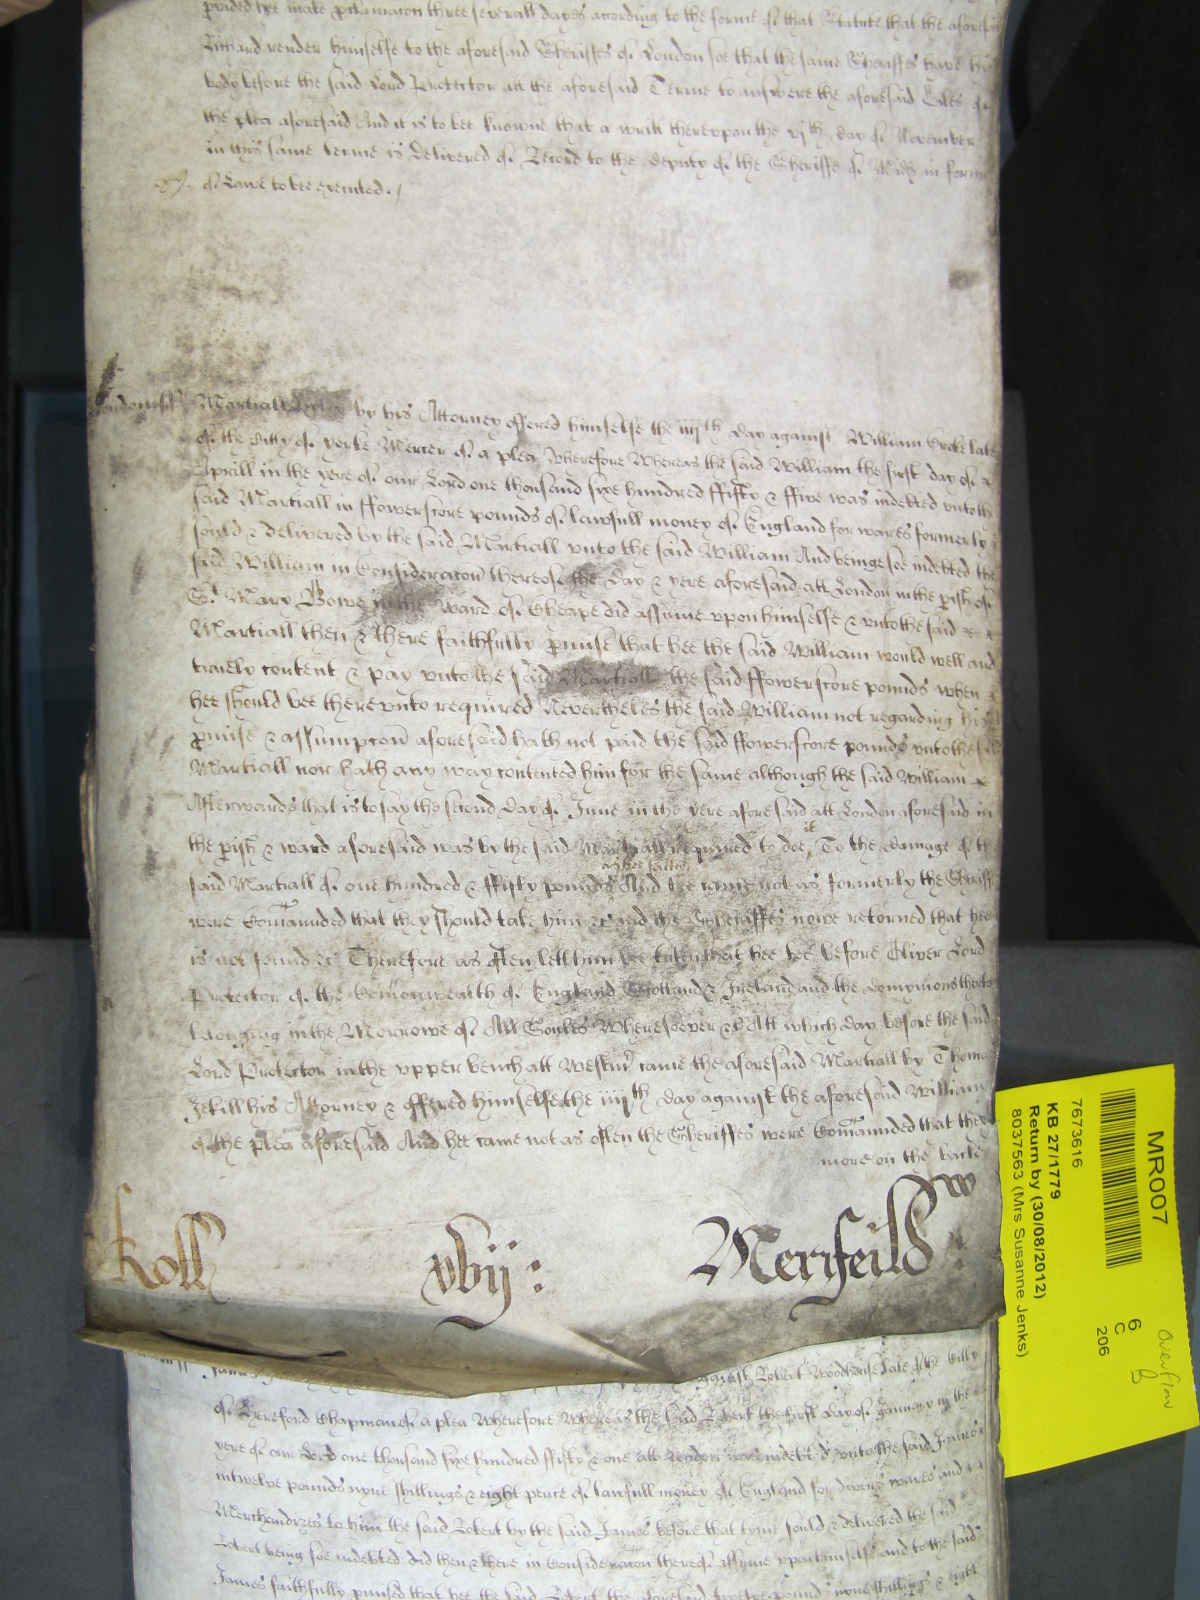 pvided hee make pclamacon three severall dayes according to the forme of that Statute that the aforesaid
Richard render himselfe to the aforesaid Sheriffes of London soe that the same Sheriffes have his
body before the said Lord Protector att the aforesaid Terme to answere the aforesaid Giles of
the plea aforesaid And it is to bee knowne that a writt therevpon the vjth day of November
in this same terme is delivered of Record to the deputy of the Sheriffe of Midd in forme
of Lawe to bee executed
London ss Martiall by his Attorney offered himselfe the iiijth day against William late
of the Citty of Yorke Mercer of a plea Wherefore Whereas the said William the first day of
Aprill in the yere of our Lord one thousand sixe hundred ffifty & ffive was indebted vnto the
said Martiall in ffowerscore pounds of lawfull money of England for wares formerly
sould & delivered by the said Martiall vnto the said William And beinge soe indebted the
said William in Consideracon thereof the day & yere aforesaid att London in the pish of
St Mary Bowe in the Ward of Cheape did assume vpon himselfe & vnto the said
Martiall then & there faithfully pmise that hee the said William would well and
truely content & pay vnto the said Martiall the said ffowerscore pounds when
hee should bee therevnto required Nevertheles the said William not regarding his
pmise & assumpcon aforesaid hath not paid the said ffowerscore pounds vnto the said
Martiall nor hath any way contented him for the same although the said William
Afterwards that is to say the second day of June in the yere aforesaid att London aforesaid in
the pish & ward aforesaid was by the said Martiall required to doe it To the damage of the
said Martiall of one hundred & ffifty pounds as hee saith And hee came not as formerly the Sheriffes
were Comaunded that they should take him &c and the Sheriffes nowe returned that hee
is not found &c Therefore as often lett him bee taken that hee bee before Oliver Lord
Protector of the Comonwealth of England Scotland & Ireland and the Dominions thereto
belonging in the Morrowe of All Soules Wheresoever &c Att which day before the said
Lord Protector in the vpper bench att Westm came the aforesaid Martiall by Thomas
Jekill his Attorney & offered himselfe the iiijth day against the aforesaid William
of the plea aforesaid And hee came not as often the Sheriffes were Comaunded that they
more on the backe
w
Roll xvij: Merifeild:
against Robert Woodhouse late of the Citty
of Hereford Chapman of a plea Wherefore Whereas the said Robert the first day of January in the
yere of our Lord one thousand sixe hundred ffifty & one att London was indebted vnto the said James
in twelve pounds nyne shillings & eight pence of lawfull money of England for divers wares and
Merchandizes to him the said Robert by the said James before that tyme sould & delivered the said
Robert being soe indebted did then & there in Consideracon thereof assume vpon himselfe and to the said
James faithfully pmised that hee the said Robert the aforesaid twelve pound nyne shillings & eight
MR007
6
C
206
overflow
B
7673616
KB 27/1779
Return by (30/08/2012)
8037563 (Mrs Susanne Jenks)